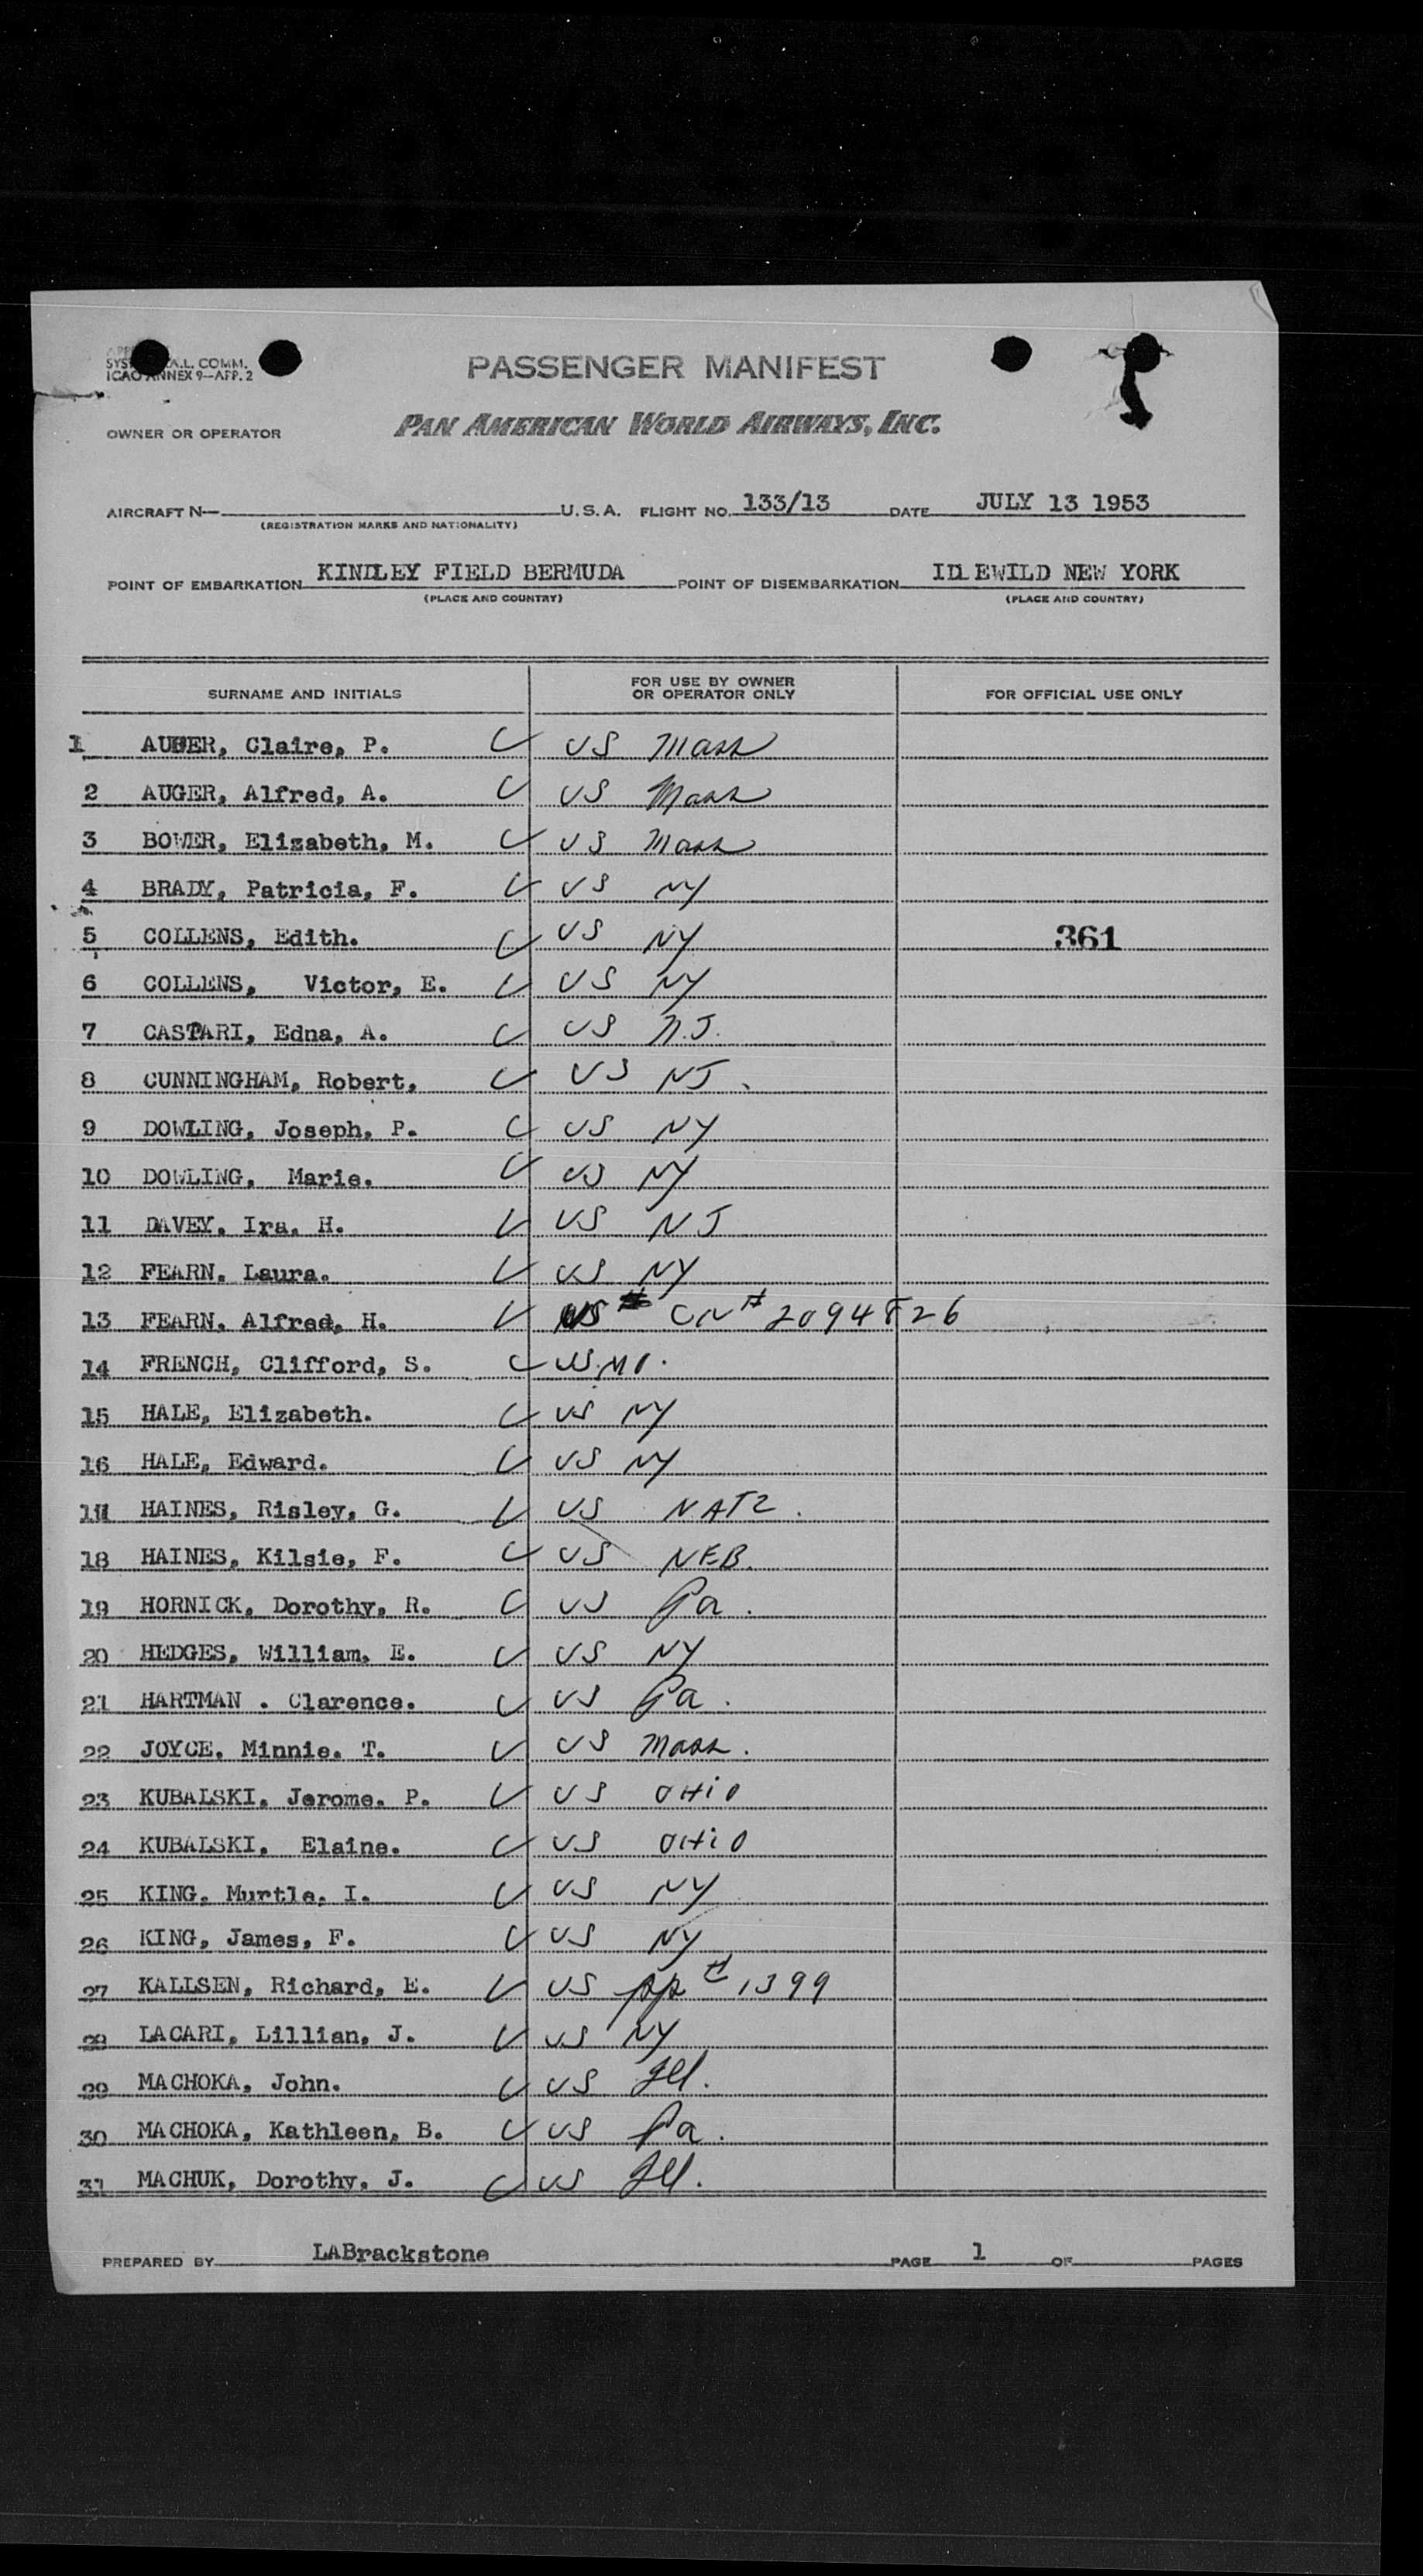 PASSENGER MANIFEST
SYS A.L. COMM.
ICAO ANNEX 9—APP. 2
OWNER OR OPERATOR PAN AMERICAN WORLD AIRWAYS, INC.
AIRCRAFT N— U.S.A. FLIGHT NO. 133/13 DATE JULY 13 1953
(REGISTRATION MARKS AND NATIONALITY)
POINT OF EMBARKATION KINDLEY FIELD BERMUDA POINT OF DISEMBARKATION IDLEWILD NEW YORK
(PLACE AND COUNTRY) (PLACE AND COUNTRY)
SURNAME AND INITIALS FOR USE BY OWNER OR OPERATOR ONLY FOR OFFICIAL USE ONLY
1 AUGER, Claire, P. US Mass
2 AUGER, Alfred, A. US Mass
3 BOWER, Elizabeth, M. US Mass
4 BRADY, Patricia, F. US NY
5 COLLENS, Edith. US NY 361
6 COLLENS, Victor, E. US NY
7 CASTARI, Edna, A. US N.J.
8 CUNNINGHAM, Robert. US NJ.
9 DOWLING, Joseph, P. US NY
10 DOWLING, Marie. US NY
11 DAVEY, Ira, H. US NJ
12 FEARN. Laura. US NY
13 FEARN. Alfred, H. CN# 2094826
14 FRENCH, Clifford, S. US.MO.
15 HALE, Elizabeth. US NY
16 HALE, Edward. US NY
17 HAINES, Risley, G. US NATZ.
18 HAINES, Kilsie, F. US NEB.
19 HORNICK, Dorothy, R. US Pa.
20 HEDGES, William, E. US NY
21 HARTMAN . Clarence. US Pa.
22 JOYCE. Minnie. T. US Mass.
23 KUBALSKI. Jerome. P. US OHIO
24 KUBALSKI. Elaine. US OHIO
25 KING. Murtle. I. US NY
26 KING, James, F. US NY
27 KALLSEN, Richard, E. US pp# 1399
28 LACARI, Lillian, J. US NY
29 MACHOKA, John. US Ill.
30 MACHOKA, Kathleen, B. US Pa.
31 MACHUK, Dorothy, J. US Ill.
PREPARED BY LABrackstone PAGE 1 OF PAGES